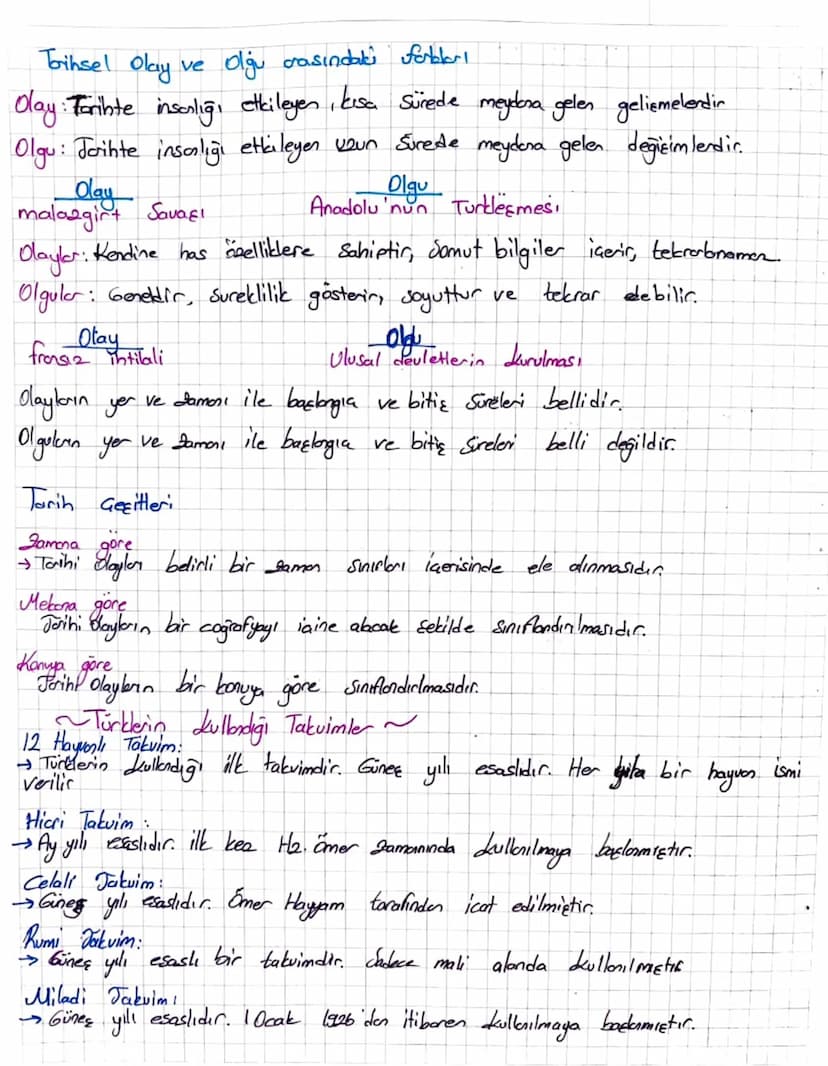 Tarihsel Olay ve Olgu arasındaki farkları
Olay: Tarihte insanlığı etkileyen, kısa sürede meydana gelen gelişmelerdir
Olgu: Tarihte insanlığı etkileyen uzun sürede meydana gelen değişimlerdir.
Olay Olgu
malazgirt Savaşı Anadolu'nun Türkleşmesi
Olaylar: Kendine has özelliklere sahiptir, somut bilgiler içerir, tekrarlanamaz.
Olgular: Geneldir, sureklilik gösterir, soyuttur ve tekrar edebilir.
Olay Olgu
fransız ihtilali Ulusal devletlerin kurulması
Olayların yer ve zamanı ile başlangıa ve bitiş süreleri bellidir.
Olguların yer ve zamanı ile başlangıa ve bitiş süreleri belli değildir.
Tarih Çeşitleri
Zamana göre
→ Tarihi Olayları belirli bir zaman sınırları içerisinde ele alınmasıdır.
Mekana göre
Tarihi Olayların bir coğrafyayı içine alacak şekilde sınıflandırılmasıdır.
Konuya göre
Tarihi Olayların bir konuya göre sınıflandırılmasıdır.
~Türklerin kullandığı Takvimler~
12 Hayvanlı Takvim:
→ Türklerin kullandığı ilk takvimdir. Güneş yılı esaslıdır. Her yıla bir hayvan ismi
verilir
Hicri Takvim:
→ Ay yılı esaslıdır. ilk kez Hz. ömer zamanında kullanılmaya başlanmıştır.
Celali Takvim:
→ Güneş yılı esaslıdır. Ömer Hayyam tarafından icat edilmiştir.
Rumi Takvim:
→ Güneş yılı esaslı bir takvimdir. Sadece mali alanda kullanılmıştır
Miladi Takvim:
→ Güneş yılı esaslıdır. 1 Ocak 1926'dan itibaren kullanılmaya başlanmıştır.